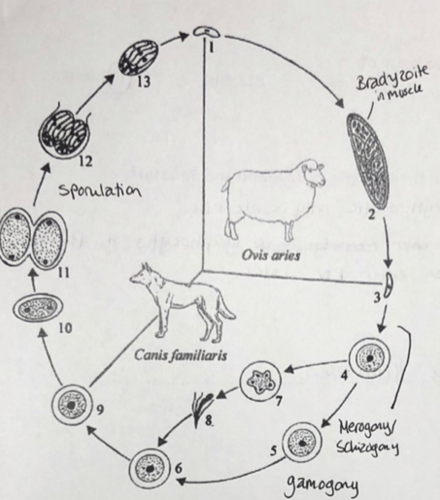 1
13
Bradyzoite
in muscle
12
Sporulation
2
Ovis aries
11
3
Canis familiaris
10
4
7
9
8
Merogony/
Schizogony
5
6
gamogony